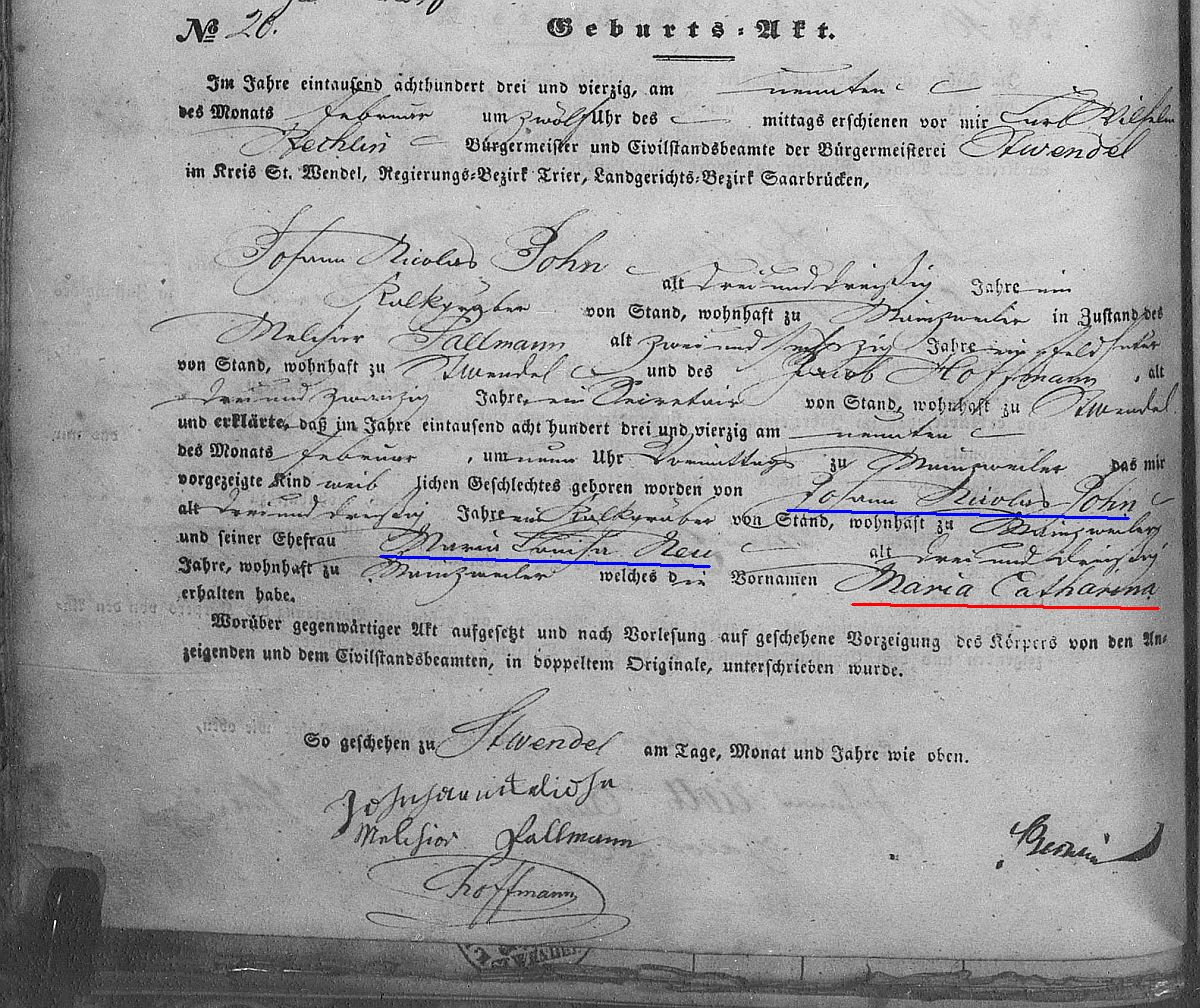 No 20. Geburts-Akt.
Im Jahre eintausend achthundert drei und vierzig, am neunten
des Monats Februar um zwölf Uhr des mittags erschienen vor mir Carl Wilhelm
Rechlin Bürgermeister und Civilstandsbeamte der Bürgermeisterei St wendel
im Kreis St. Wendel, Regierungs-Bezirk Trier, Landgerichts-Bezirk Saarbrücken,
Johann Nicolas John
alt drei und dreißig Jahre ein
Kalkgräber von Stand, wohnhaft zu Mainzweiler in Zustand des
Melchior Tallmann alt zwei und sechszig Jahre ein Feldhüter
von Stand, wohnhaft zu St wendel und des Jacob Hoffmann, alt
drei und zwanzig Jahre, ein Secretair von Stand, wohnhaft zu St wendel
und erklärte, daß im Jahre eintausend acht hundert drei und vierzig am neunten
des Monats Februar, um neun Uhr Vormittags zu Mainzweiler das mir
vorgezeigte Kind weib lichen Geschlechtes geboren worden von Johann Nicolas John
alt drei und dreißig Jahre ein Kalkgräber von Stand, wohnhaft zu Mainzweiler
und seiner Ehefrau Maria Louisa Neu alt drei und dreißig
Jahre, wohnhaft zu Mainzweiler welches die Vornamen Maria Catharina
erhalten habe.
Worüber gegenwärtiger Akt aufgesetzt und nach Vorlesung auf geschehene Vorzeigung des Körpers von den An-
zeigenden und dem Civilstandsbeamten, in doppeltem Originale, unterschrieben wurde.
So geschehen zu St wendel am Tage, Monat und Jahre wie oben.
Melchior Tallmann
Hoffmann
St WENDEL